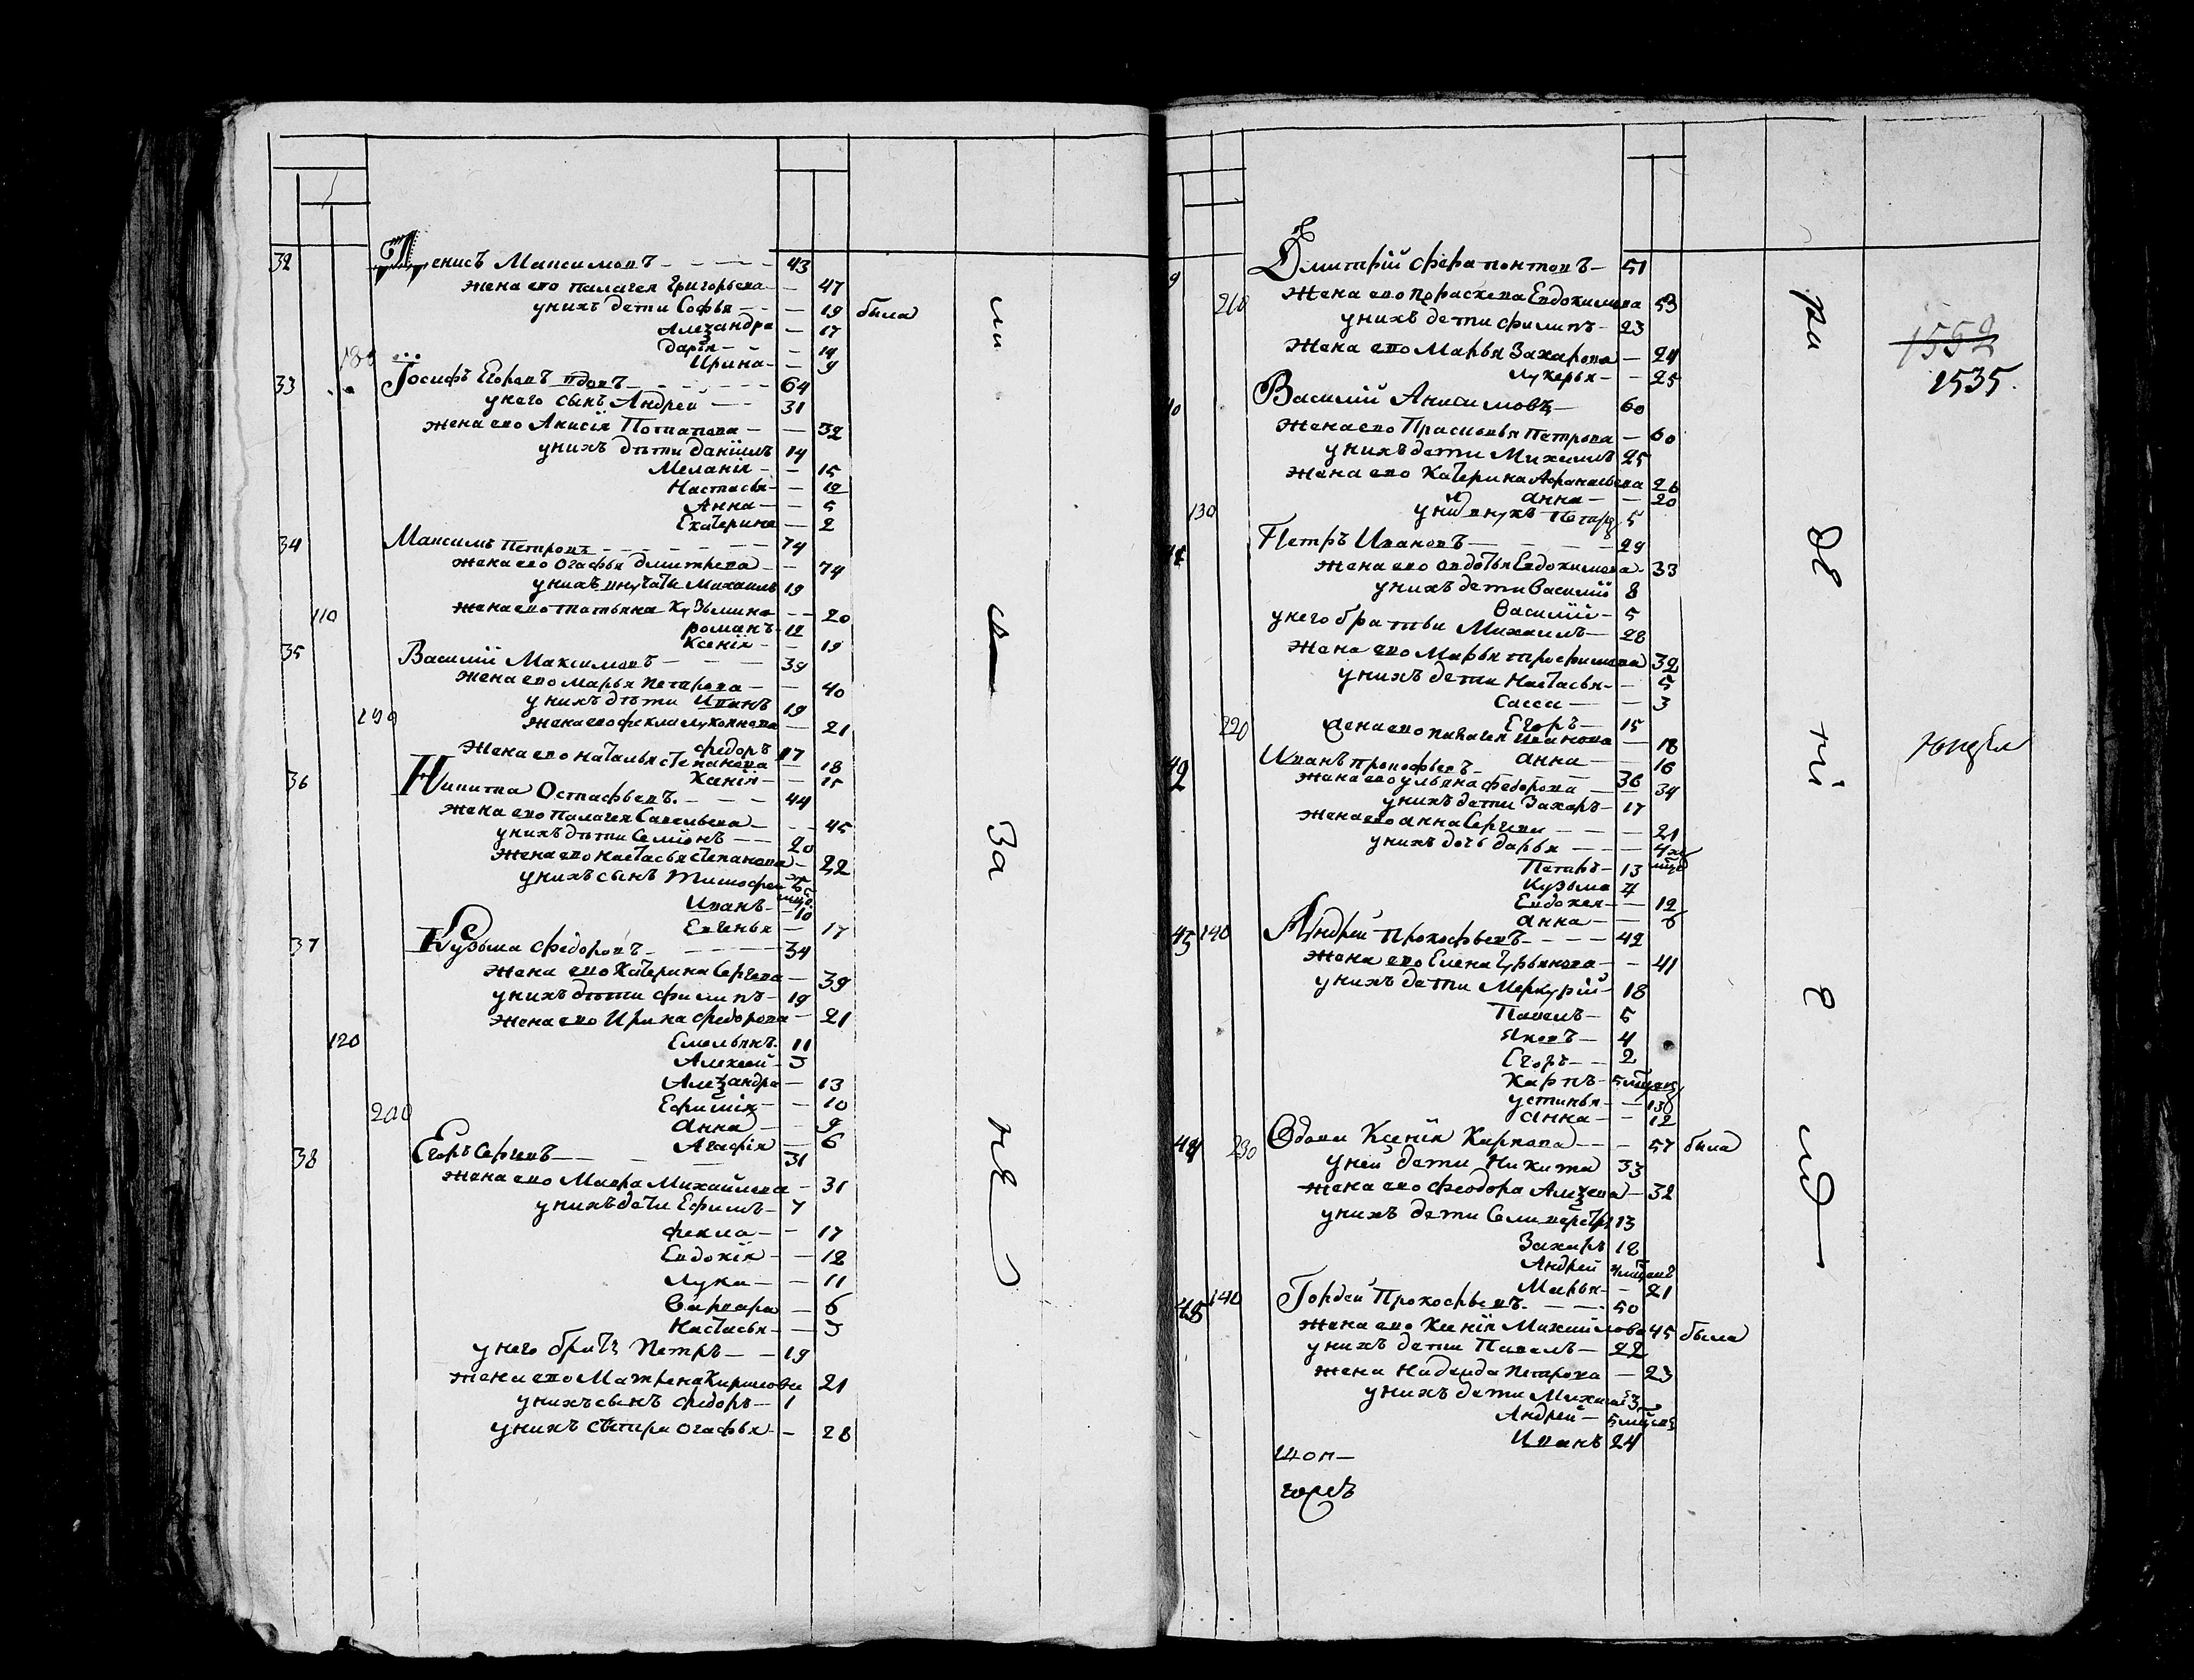 32 Денисъ Максимовъ - 43
жена ево палагея Григорьева - 47
унихъ дети Софья - 19 была
Алеѯандра - 17
дарья - 14
188 Ирина - 9
33 Іосифъ Егоровъ вдовъ - 64
унего сынъ Андрей - 31
жена ево Анисія Потапова - 32
унихъ дѣти даніилъ 14
Меланія - 15
Настасья - 12
Анна - 5
Екатерина - 2
34 Максимъ Петровъ - 74
жена ево Огафья дмитрева - 74
унихъ внучати Михаилъ 19
110 жена ево татьяна Кузьмина - 20
романъ - 12
Ксенія - 19
35 Василій Максимовъ - 39
жена ево марья петрова - 40
унихъ дѣти Иванъ 19
199 жена ево фекла лукоянова - 21
федоръ 17
жена ево наталья степанова - 18
Ксенія - 15
36 Никита Остафьевъ. - 44
жена ево палагея Савельева - 45
унихъ дѣти Семіонъ - 20
жена ево настасья степанова - 22
унихъ сынъ тимофей
Иванъ - 10
Евгенья - 17
37 Кузьма федоровъ - 34
жена ево Катерина Сергева - 39
унихъ дѣти филипъ - 19
жена ево Ирина федорова - 21
120 Емельянъ. 11
Алексей - 3
Алеѯандра - 13
Ефимія - 10
200 анна - 9
Агафія - 6
38 Егоръ Сергевъ - 31
жена ево Мавра Михайлова - 31
унихъ дети Ефимъ - 7
фекла - 17
Евдокія - 12
Лука - 11
Варвара - 6
Настасья - 3
унего братъ Петръ - 19
жена ево Матрена Кириловна 21
унихъ сынъ федоръ - 1
унихъ сестра огафья - 28
ми
ло
За
не
9 Дмитрій Ферапонтовъ - 51
210 жена ево Прасковья Евдокимова 53
унихъ дети филипъ - 23
жена ево Марья Захарова - 24
лукерья - 25
40 Василій Анисимовъ - 60
жена ево Прасковья Петрова - 60
унихъ дети Михаилъ 25
жена ево Катерина Афанасьева 26
анна - 20
130 внукъ Петръ 5
41 Петръ Ивановъ - 29
жена ево овдотья Евдокимова - 33
унихъ дети Василій 8
Василій - 5
унего братьи Михаилъ - 28
жена ево Марья трофимова 32
унихъ дети Настасья - 5
Сасса - 3
220 Егоръ - 15
жена ево палагея Иванова - 18
анна - 16
42 Иванъ прокофьевъ - 36
жена ево ульяна федорова - 34
унихъ дети Захаръ - 17
жена ево анна Сергеева - 21
унихъ дочь дарья - 4
Петръ - 13
Кузьма 4
Евдокея - 12
анна - 6
43 140 Андрей Прокофьевъ - 42
жена ево Елена Гурьянова - 41
унихъ дети Меркурій - 18
Павелъ - 5
Яковъ - 4
Егоръ - 2
Карпъ - 5
устинья - 13
анна - 12
44 230 Вдова Ксенія Карпова - 57 была
уней дети Никита 33
жена ево феодора Алеѯева - 32
унихъ дети Селиверстъ 13
Захаръ 12
Андрей
Марья - 21
45 140 Гордей Прокофьевъ. - 50
жена ево Ксенія Михайлова 45 была
унихъ дети Павелъ - 22
жена Надежда петрова - 23
унихъ дети Михаилъ 3
Андрей - 5
Иванъ 24
шоп-
горсъ
ра
де
ті
е
1552
1535.